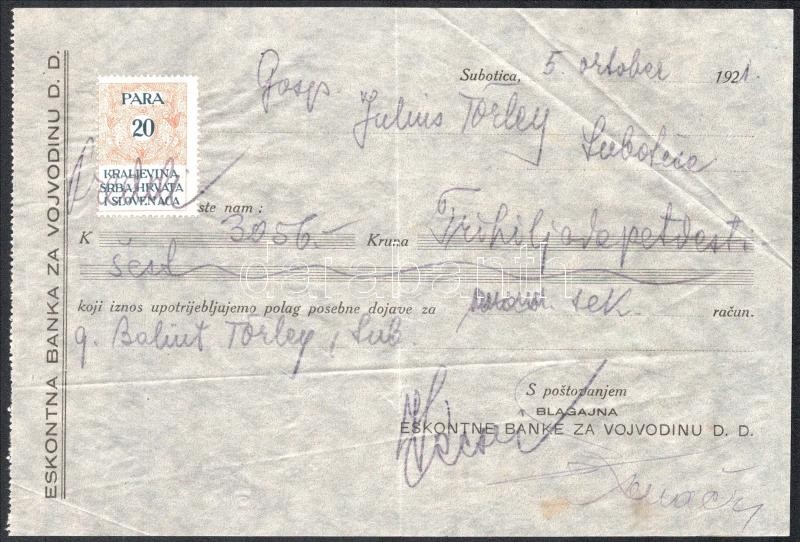 ESKONTNA BANKA ZA VOJVODINU D. D.
Subotica, 5. october 1921.
Gosp.
Julius Törley
Subotica
PARA
20
KRALJEVINA
SRBA, HRVATA
I SLOVENACA
ste nam:
K 3056.- Kruna Trihiljadapetdeset i
šest
darabanth
koji iznos upotrijebljujemo polag posebne dojave za sek. račun.
g. Balint Törley, Sub.
S poštovanjem
BLAGAJNA
ESKONTNE BANKE ZA VOJVODINU D. D.